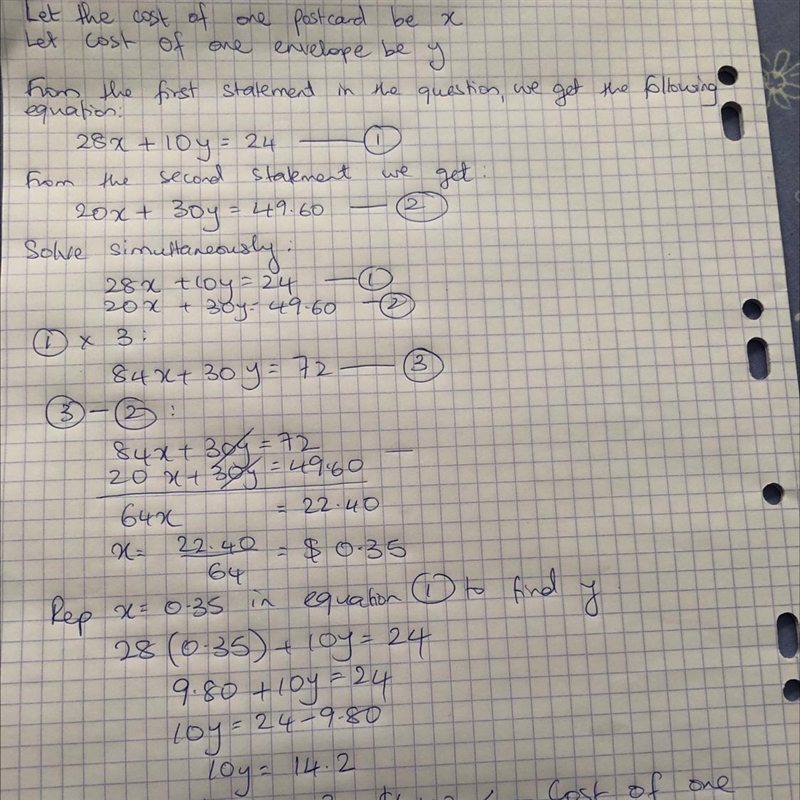 Let the cost of one postcard be x
Let cost of one envelope be y
From the first statement in the question, we get the following
equation:
28x + 10y = 24 —— ①
From the second statement we get:
20x + 30y = 49.60 — ②
Solve simultaneously:
28x + 10y = 24 — ①
20x + 30y = 49.60 — ②
① × 3:
84x + 30y = 72 —— ③
③ - ② :
84x + 30y = 72 —
20x + 30y = 49.60
64x = 22.40
x = 22.40/64 = $ 0.35
Rep x = 0.35 in equation ① to find y.
28(0.35) + 10y = 24
9.80 + 10y = 24
10y = 24 - 9.80
10y = 14.2
Cost of one